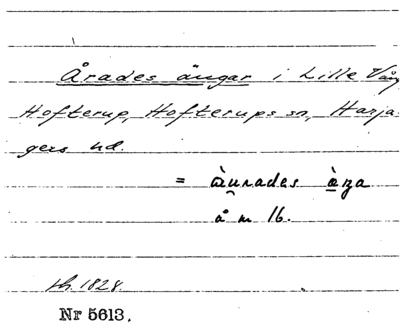 Årades ängar i Lille Väng
Hofterup, Hofterups sn, Harja-
gers hd.
= àu̯rades àṉa
å m 16.
sk. 1828
Nr 5613.